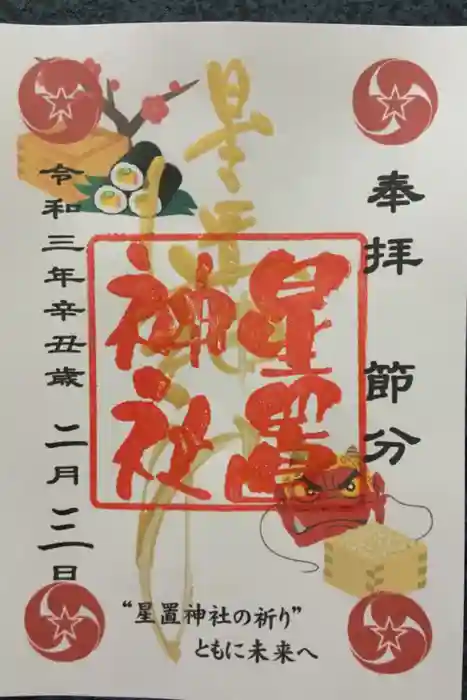 奉拝 節分
星置神社
星置
神社
令和三年辛丑歳 二月三日
“星置神社の祈り”
ともに未来へ